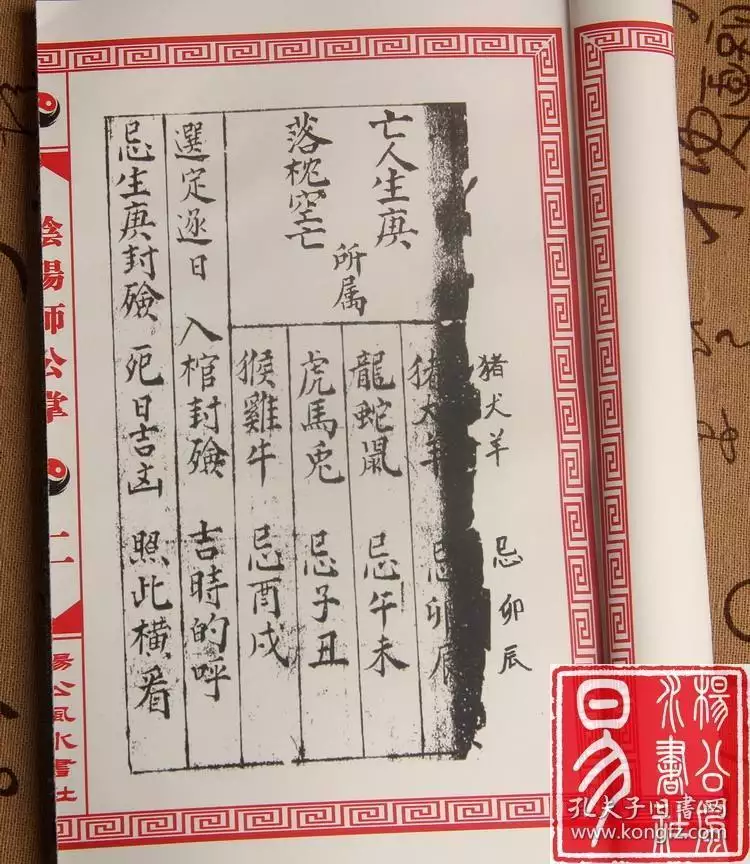 猪犬羊 忌卯辰
亡人生庚
落枕空亡
所属
猪犬羊 忌卯辰
龍蛇鼠 忌午未
虎馬兎 忌子丑
猴雞牛 忌酉戌
選定逐日 入棺封殮 吉時的呼
忌生庚封殮 死日吉凶 照此横看
陰陽師公掌
二
楊公風水書社
楊公風水書社
孔夫子旧書网
www.kongfz.com